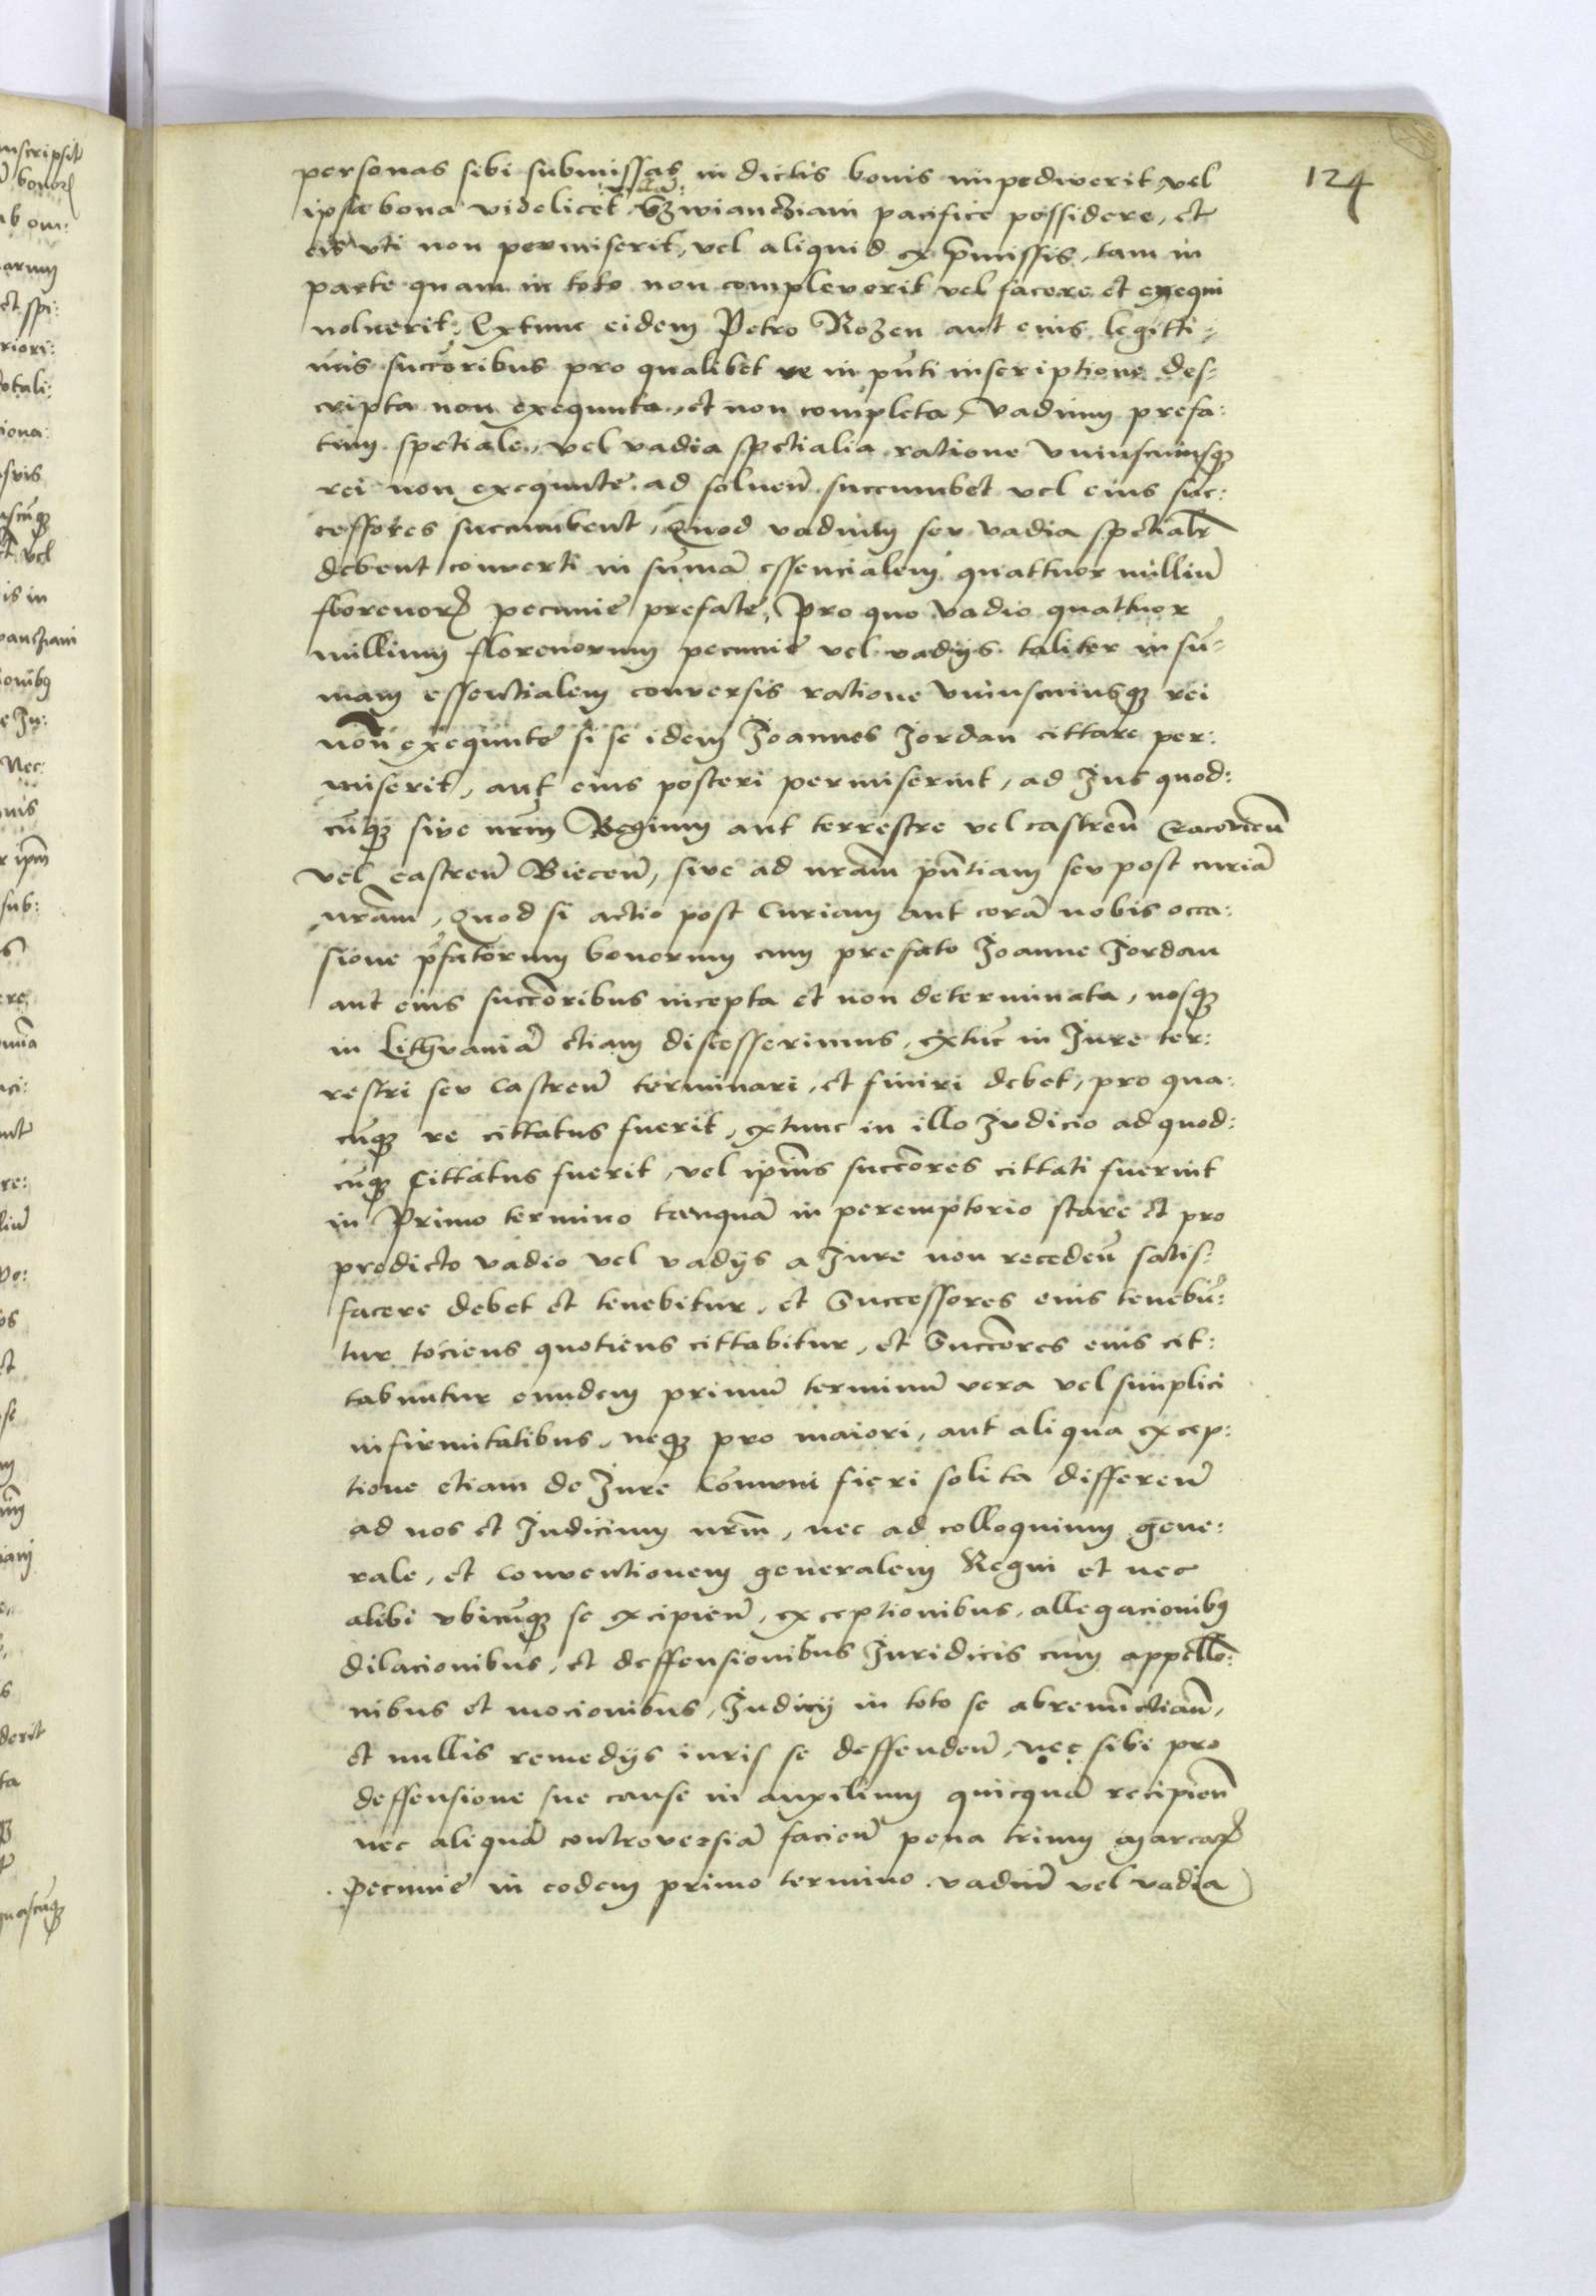 124
personas sibi submissas in dictis bonis impediverit vel
ipse bona videlicet villam Vzwiancziam pacifice possidere, et
eis vti non permiserit, vel aliquid ex p̄missis, tam in
parte quam in toto non compleverit vel facere et exequi
noluerit, Extunc eidem Petro Rozen aut eius legitti-
mis succ̄oribus pro qualibet re in pn̄ti inscriptione des:
cripta non exequuta, et non completa, vadium prefa:
tum spetiale, vel vadia spetialia ratione vniuscuiusq3
rei non exequute ad soluen̄ succumbet vel eius suc:
cessores succumbent, Quod vadium seu vadia spetialia
debent converti in sum̄a essencialem quattuor milliū
florenor̄ pecunie prefate, Pro quo vadio quattuor
millium florenorum pecunie vel vadijs taliter in su-
mam essentialem conversis ratione vniuscuiusq3 rei
non exequute si se idem Joannes Jordan cittare per:
miserit, aut eius posteri permiserint, ad Jus quod:
cūq3 sive nr̄m Regium aut terrestre vel castren̄ Cracovien̄
vel castren̄ Biecen̄, sive ad nr̄am pn̄tiam seu post curiā
nr̄am, Quod si actio post Curiam aut corā nobis occa:
sione p̄fatorum bonorum cum prefato Joanne Jordan
aut eius succ̄oribus incepta et non determinata, nosq3
in Lithvaniā etiam discesserimus, extūc in Jure ter:
restri seu castren̄ terminari, et finiri debet, pro qua:
cūq3 re cittatus fuerit, extunc in illo Judicio ad quod:
cūq3 cittatus fuerit, vel ip̄ius succ̄ores cittati fuerint
in Primo termino tanquā in peremptorio stare et pro
predicto vadio vel vadijs a Jure non receden̄ satis:
facere debet et tenebitur, et Successores eius tenebū:
tur tociens quotiens cittabitur, et Succ̄ores eius cit:
tabuntur eundem primū terminū vera vel simplici
infirmitatibus, neq3 pro maiori, aut aliqua excep:
tione etiam de Jure Com̄uni fieri solita differen̄
ad nos et Judicium nr̄m, nec ad colloquium gene:
rale, et conventionem generalem Regni et nec
alibi vbicūq3 se excipien̄, exceptionibus, allegacionib9
dilacionibus, et deffensionibus Juridicis cum appellō:
nibus et mocionibus, Judicij in toto se abrenūctian̄,
et nullis remedijs iuris se deffenden̄, nec sibi pro
deffensione sue cause in auxilium quicquā recipien̄
nec aliquā controversiā facien̄ pena trium marcar̄
pecunie in eodem primo termino vadiū vel vadia